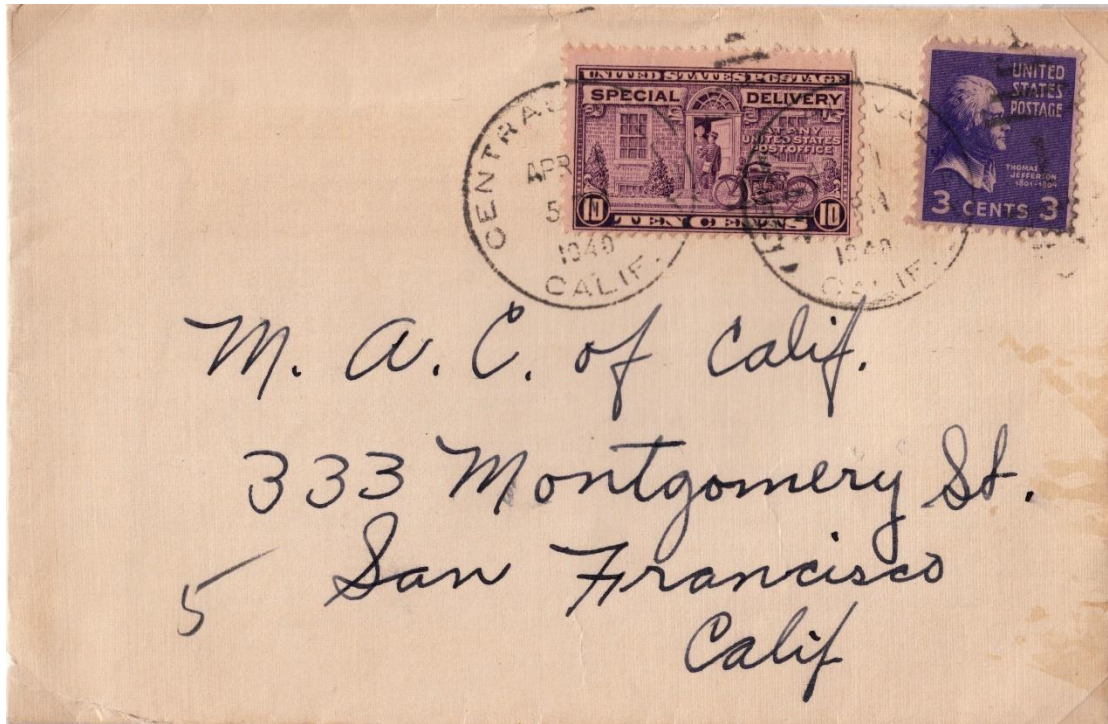 UNITED STATES POSTAGE
SPECIAL DELIVERY
AT ANY
UNITED STATES
POST OFFICE
10 TEN CENTS 10
UNITED
STATES
POSTAGE
THOMAS
JEFFERSON
1801-1809
3 CENTS 3
APR
5
1940
CALIF.
1940
CALIF.
M. A. C. of Calif.
333 Montgomery St.
San Francisco
5
Calif